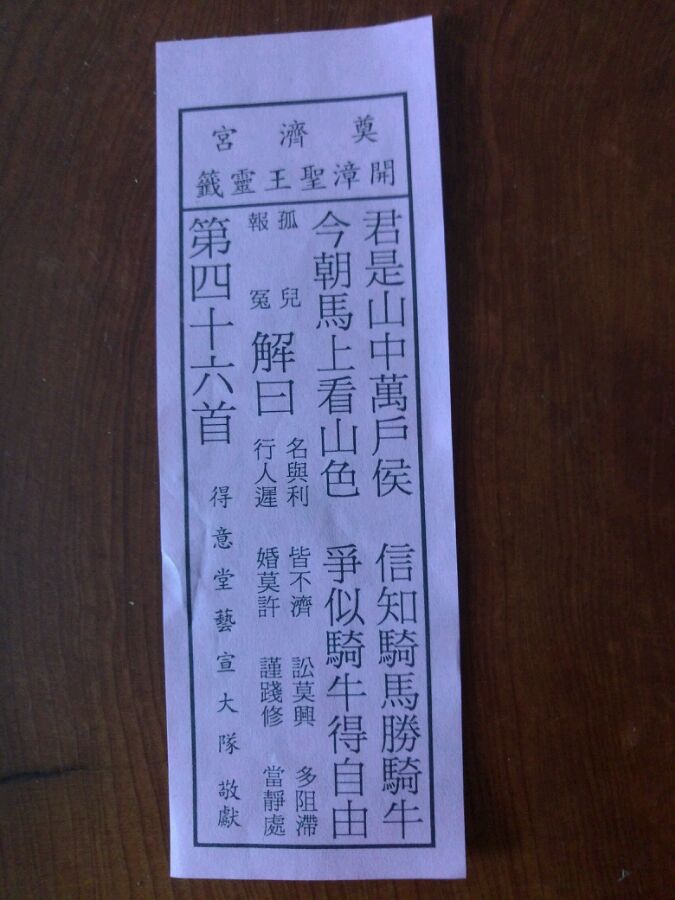 奠濟宮
開漳聖王靈籤
君是山中萬戶侯 信知騎馬勝騎牛
今朝馬上看山色 爭似騎牛得自由
孤兒
報冤
解曰
名與利 皆不濟 訟莫興 多阻滯
行人遲 婚莫許 謹踐修 當靜處
第四十六首
得意堂藝宣大隊敬獻